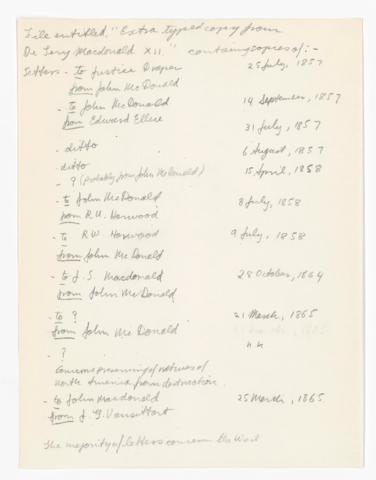 File entitled, "Extra typed copy from
De Lery Macdonald XII." containing copies of:-
Letters - to Justice Draper 25 July, 1857
from John McDonald
- to John McDonald 14 September, 1857
from Edward Ellice
- ditto 31 July, 1857
- ditto 6 August, 1857
- ? (probably from John McDonald) 15 April, 1858
- to John McDonald 8 July, 1858
from R.U. Harwood
- to R.W. Harwood 9 July, 1858
from John McDonald
- to J.S. Macdonald 28 October, 1864
from John McDonald
- to ? 21 March, 1865
from John McDonald
- ? " "
concerns preserving of natives of
North America from destruction.
- to John Macdonald 25 March, 1865
from J. G. Vansittart
The majority of letters concern the West